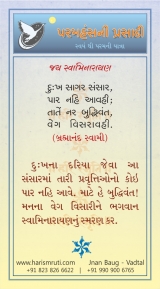 પરમહંસની પ્રસાદી
સ્વયં થી પરમની યાત્રા
જય સ્વામિનારાયણ
દુઃખ સાગર સંસાર,
પાર નહિ આવહી;
તાતેં નર બુદ્ધિવંત,
વેગ વિસરાવહી.
(બ્રહ્માનંદ સ્વામી)
દુઃખના દરિયા જેવા આ
સંસારમાં તારી પ્રવૃત્તિઓનો કોઇ
પાર નહિ આવે. માટે હે બુદ્ધિવંત!
મનના વેગ વિસારીને ભગવાન
સ્વામિનારાયણનું સ્મરણ કર.
www.harismruti.com Jnan Baug - Vadtal
+91 823 826 6622 | +91 990 900 6765